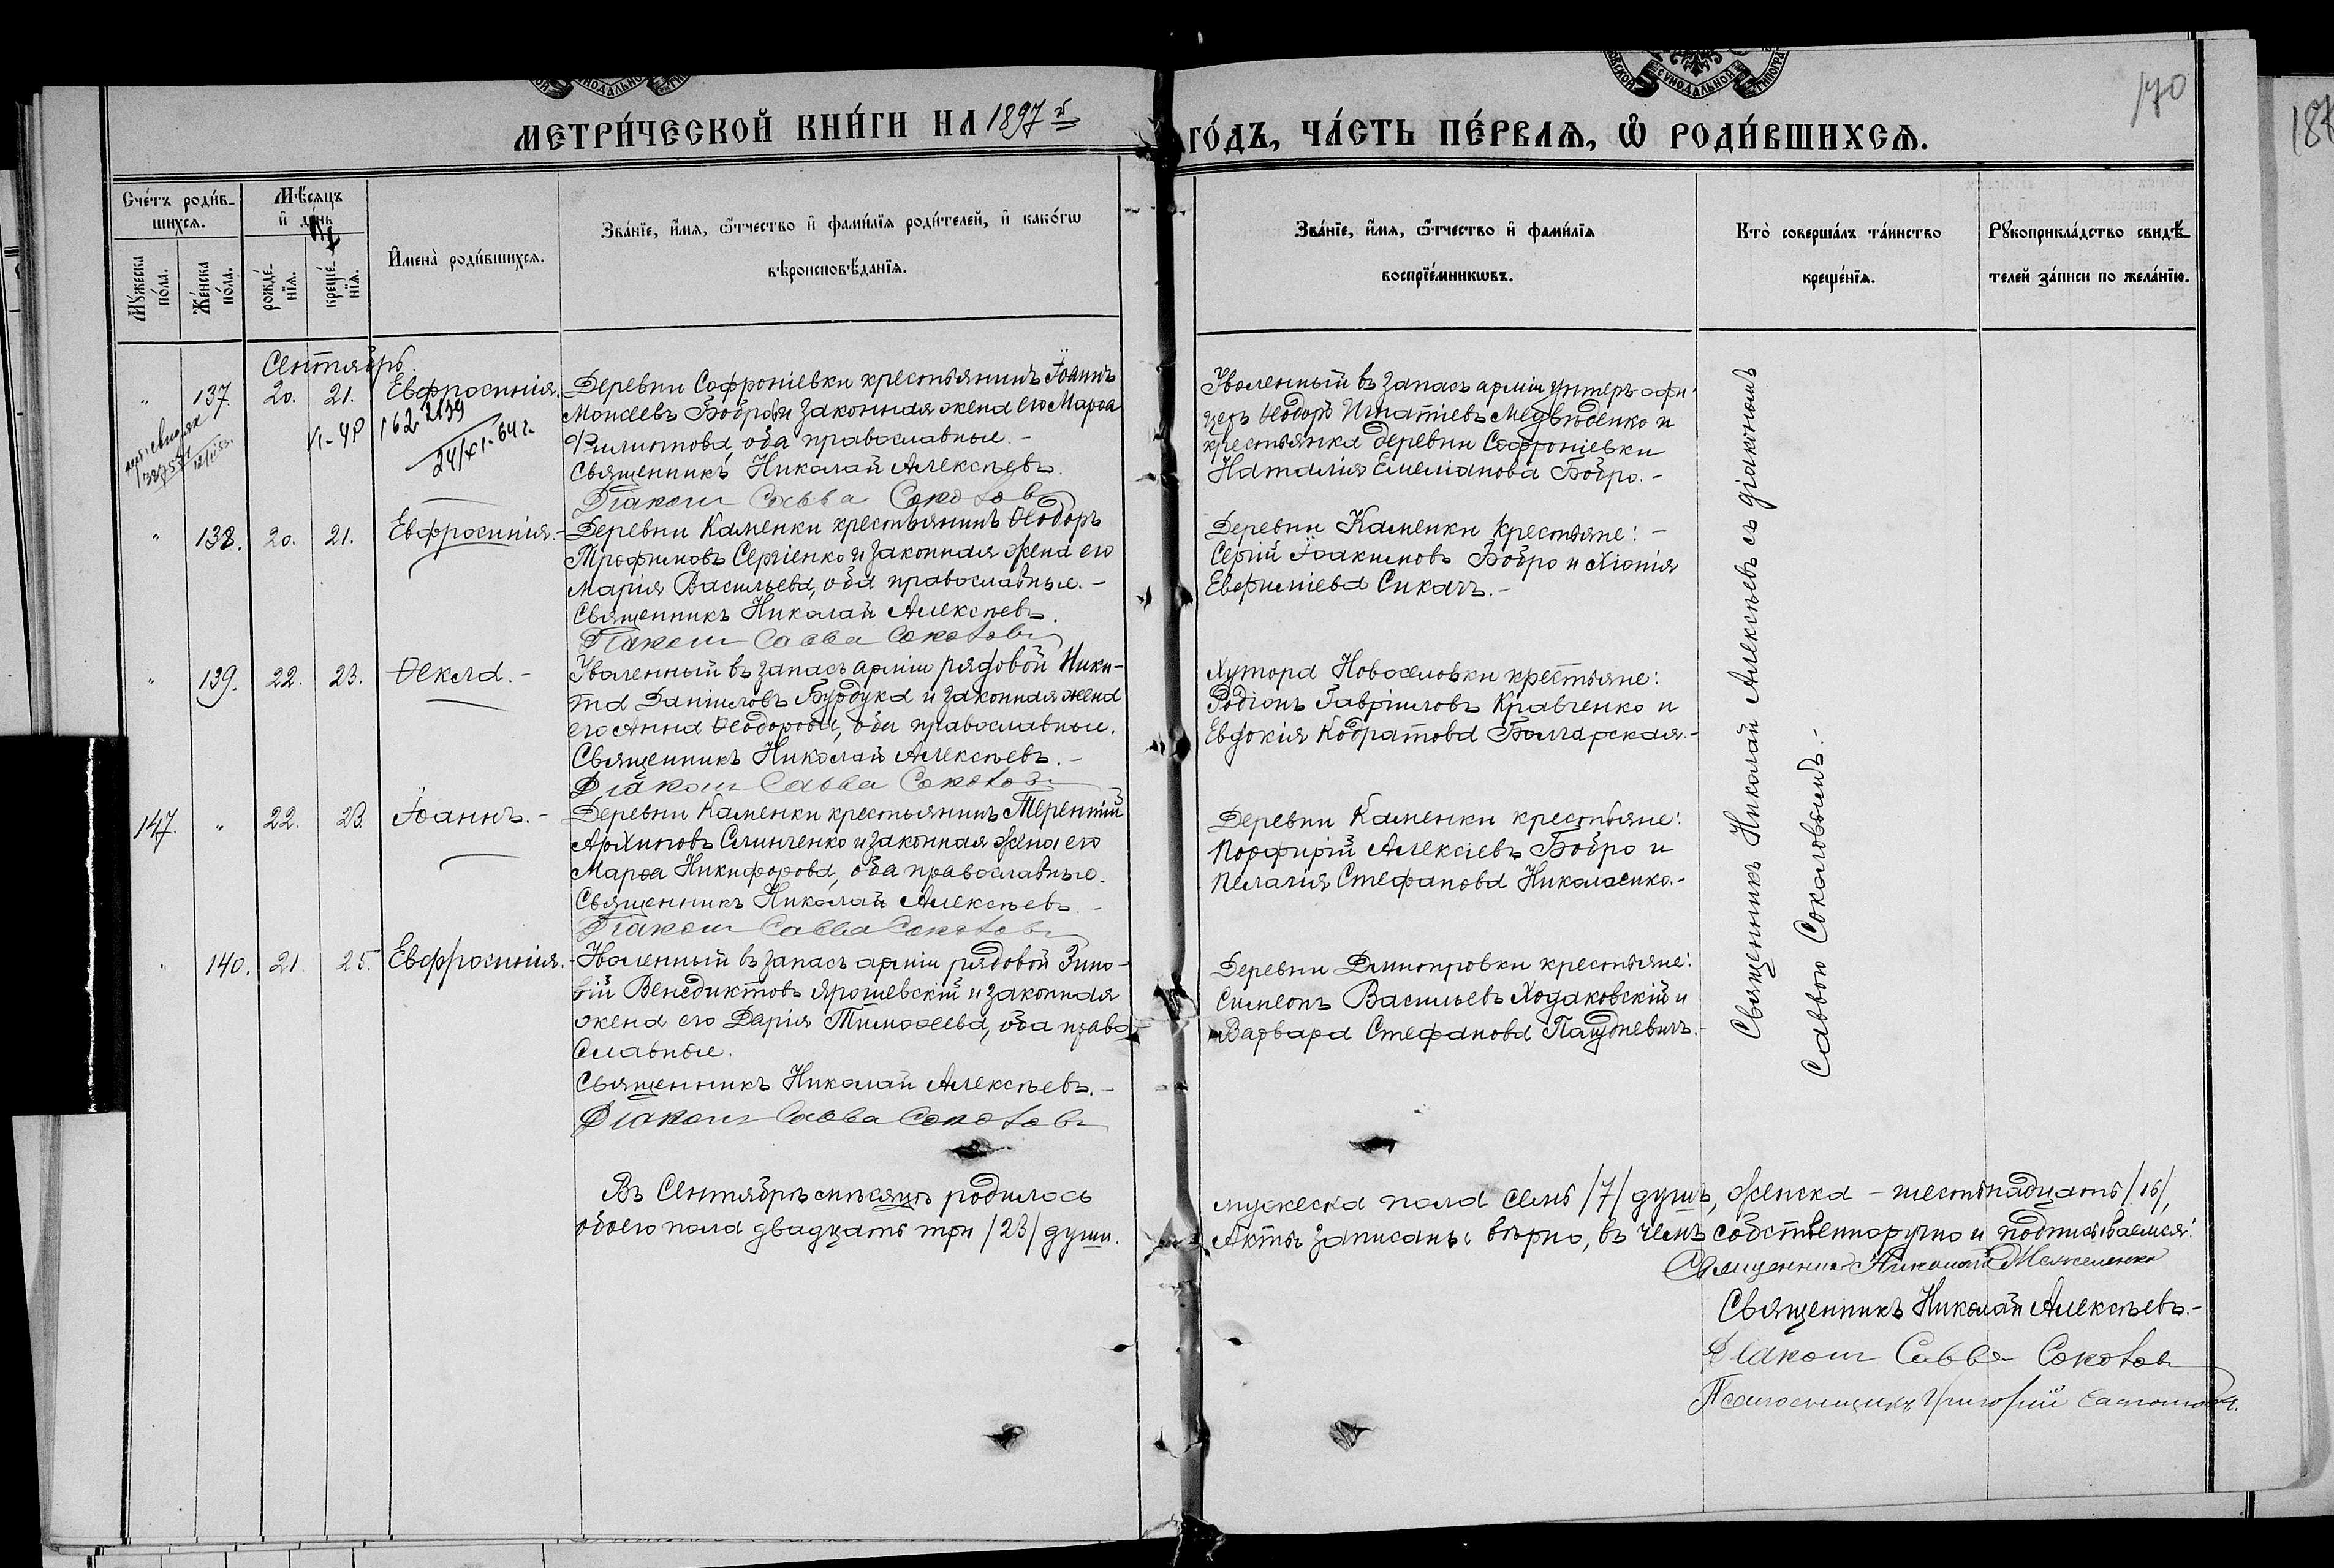 СѴНОДАЛЬНОЙ
СѴНОДАЛЬНОЙ
МЕТРИ́ЧЕСКОЙ КНИ́ГИ НА 1897 й
ГО́ДЪ, ЧА́СТЬ ПЕ́РВАѦ, Ѡ҆ РОДИ́ВШИХСѦ.
170
Сче́тъ роди́в-
шихсѧ.
Мꙋ́жеска
по́ла.
Же́нска
по́ла.
Мѣ́сѧцъ
и҆ де́нь
рожде́-
нїѧ.
креще́-
нїѧ.
И҆мена̀ роди́вшихсѧ.
Зва́нїе, и҆́мѧ, ѻ҆́тчество и҆ фами́лїѧ роди́телей, и҆ како́гѡ
вѣроисповѣ́данїѧ.
Зва́нїе, и҆́мѧ, ѻ҆́тчество и҆ фами́лїѧ
воспрїе́мникѡвъ.
Кто̀ соверша́лъ та́инство
креще́нїѧ.
Рꙋкоприкла́дство свидѣ́-
телей за́писи по жела́нїю.
Сентябрь.
" 137. 20. 21. Евфросинія.
VI-ЧР 162 2139
24/XI-64 г.
Деревни Софроніевки крестьянинъ Іоаннъ
Моисеевъ Бобро и законная жена его Марѳа
Филиппова, оба православные. -
Священникъ Николай Алексѣевъ.
Діаконъ Савва Соколовъ
Уволенный въ запасъ арміи унтеръ-офи-
церъ Ѳеодоръ Игнатіевъ Медвѣденко и
крестьянка деревни Софроніевки
Наталія Емеліанова Бобро. -
" 138. 20. 21. Евфросинія. -
Деревни Каменки крестьянинъ Ѳеодоръ
Трофимовъ Сергіенко и законная жена его
Марія Васильева, оба православные. -
Священникъ Николай Алексѣевъ.
Діаконъ Савва Соколовъ
Деревни Каменки крестьяне: -
Сергій Іоакимовъ Бобро и Хіонія
Евфиміева Сикачъ. -
" 139. 22. 23. Ѳекла. -
Уволенный въ запасъ арміи рядовой Ники-
та Даніиловъ Бурдука и законная жена
его Анна Ѳеодорова, оба православные.
Священникъ Николай Алексѣевъ. -
Діаконъ Савва Соколовъ
Хутора Новоселовки крестьяне:
Родіонъ Гавріиловъ Кравченко и
Евдокія Кодратова Болгарская. -
147. " 22. 23. Іоаннъ. -
Деревни Каменки крестьянинъ Терентій
Архиповъ Слинченко и законная жена его
Марѳа Никифорова, оба православные.
Священникъ Николай Алексѣевъ. -
Діаконъ Савва Соколовъ
Деревни Каменки крестьяне:
Порфирій Алексіевъ Бобро и
Пелагія Стефанова Николаенко. -
" 140. 21. 25. Евфросинія. -
Уволенный въ запасъ арміи рядовой Зино-
вій Венедиктовъ Ярошевскій и законная
жена его Дарія Тимоѳеева, оба право-
славные.
Священникъ Николай Алексѣевъ. -
Діаконъ Савва Соколовъ
Деревни Дмитровки крестьяне:
Симеонъ Васильевъ Ходаковскій и
Варвара Стефанова
Священникъ Николай Алексѣевъ съ діакономъ
Саввою Соколовымъ. -
Въ Сентябрѣ мѣсяцѣ родилось
обоего пола двадцать три /23/ души.
мужеска пола семь /7/ душъ, женска - шестьнадцать /16/,
Акты записаны вѣрно, въ чемъ собственноручно и подписываемся:
Священникъ Николай
Священникъ Николай Алексѣевъ. -
Діаконъ Савва Соколовъ
Псаломщикъ Григорій